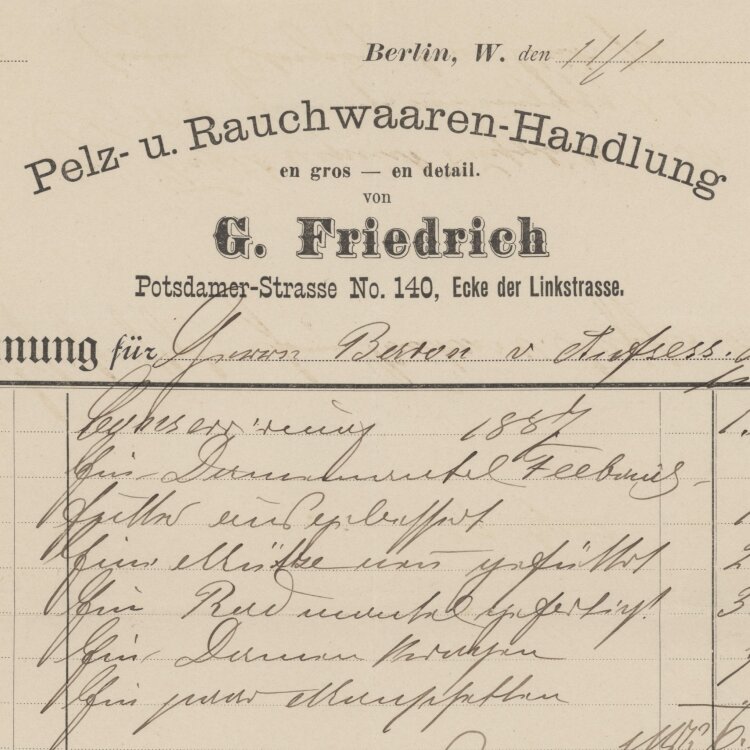 Berlin, W. den 11/1
Pelz- u. Rauchwaaren-Handlung
en gros — en detail.
von
G. Friedrich
Potsdamer-Strasse No. 140, Ecke der Linkstrasse.
nung für Herrn Baron v Aufsess.
Conservirung 1887
Ein Damenmantel Feebauch-
futter ausgebessert
Eine Mütze neu gefüttert
Ein Radmantel gefertigt
Ein Damen Kragen
Ein paar Manschetten